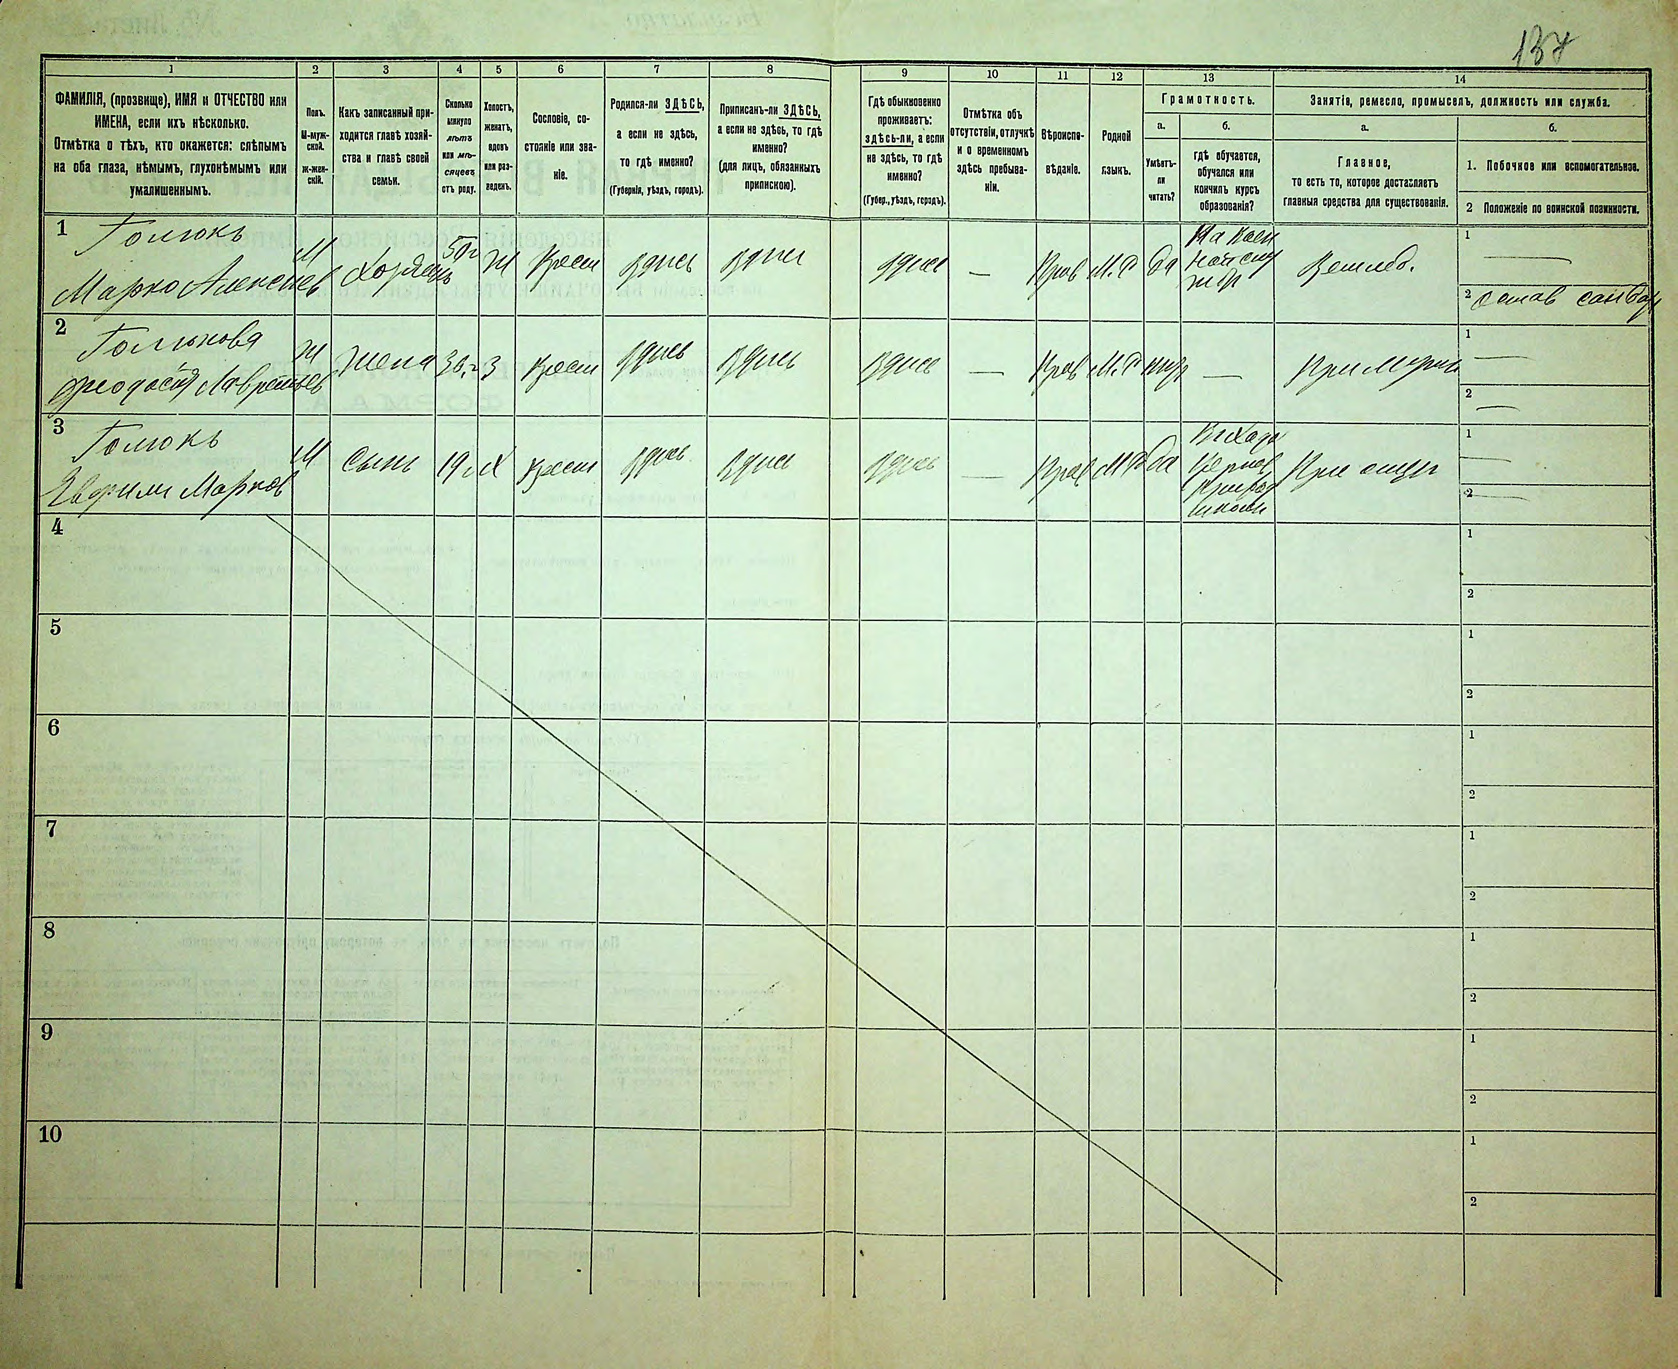 137
1 2 3 4 5 6 7 8 9 10 11 12 13 14
ФАМИЛІЯ, (прозвище), ИМЯ и ОТЧЕСТВО или
ИМЕНА, если ихъ нѣсколько.
Отмѣтка о тѣхъ, кто окажется: слѣпымъ
на оба глаза, нѣмымъ, глухонѣмымъ или
умалишеннымъ.
Полъ.
М-муж-
ской.
ж-жен-
скій.
Какъ записанный при-
ходится главѣ хозяй-
ства и главѣ своей
семьи.
Сколько
минуло
лѣтъ
или мѣ-
сяцевъ
отъ роду.
Холостъ,
женатъ,
вдовъ
или раз-
веденъ.
Сословіе, со-
стояніе или зва-
ніе.
Родился-ли ЗДѢСЬ,
а если не здѣсь,
то гдѣ именно?
(Губернія, уѣздъ, городъ).
Приписанъ-ли ЗДѢСЬ,
а если не здѣсь, то гдѣ
именно?
(для лицъ, обязанныхъ
припискою).
Гдѣ обыкновенно
проживаетъ:
здѣсь-ли, а если
не здѣсь, то гдѣ
именно?
(Губер., уѣздъ, городъ).
Отмѣтка объ
отсутствіи, отлучкѣ
и о временномъ
здѣсь пребыва-
ніи.
Вѣроиспо-
вѣданіе.
Родной
языкъ.
Грамотность.
а.
Умѣетъ-
ли
читать?
б.
гдѣ обучается,
обучался или
кончилъ курсъ
образованія?
Занятіе, ремесло, промыселъ, должность или служба.
а.
Главное,
то есть то, которое доставляетъ
главныя средства для существованія.
б.
1. Побочное или вспомогательное.
2 Положеніе по воинской повинности.
1 Голюкъ
Марко Алексѣев М Хозяинъ 50 г Ж Крест здѣсь здѣсь здѣсь — Прав М.Р да Землед.
1 —
2
2 Голюкова
Феодосія Лаврентьев Ж Жена 36 г З Крест здѣсь здѣсь здѣсь — Прав М.Р — При мужѣ
1 —
2 —
3 Голюкъ
Марков М Сынъ 19 г Х Крест здѣсь здѣсь здѣсь — Прав М.Р да При отцѣ
1 —
2 —
4 1
2
5 1
2
6 1
2
7 1
2
8 1
2
9 1
2
10 1
2